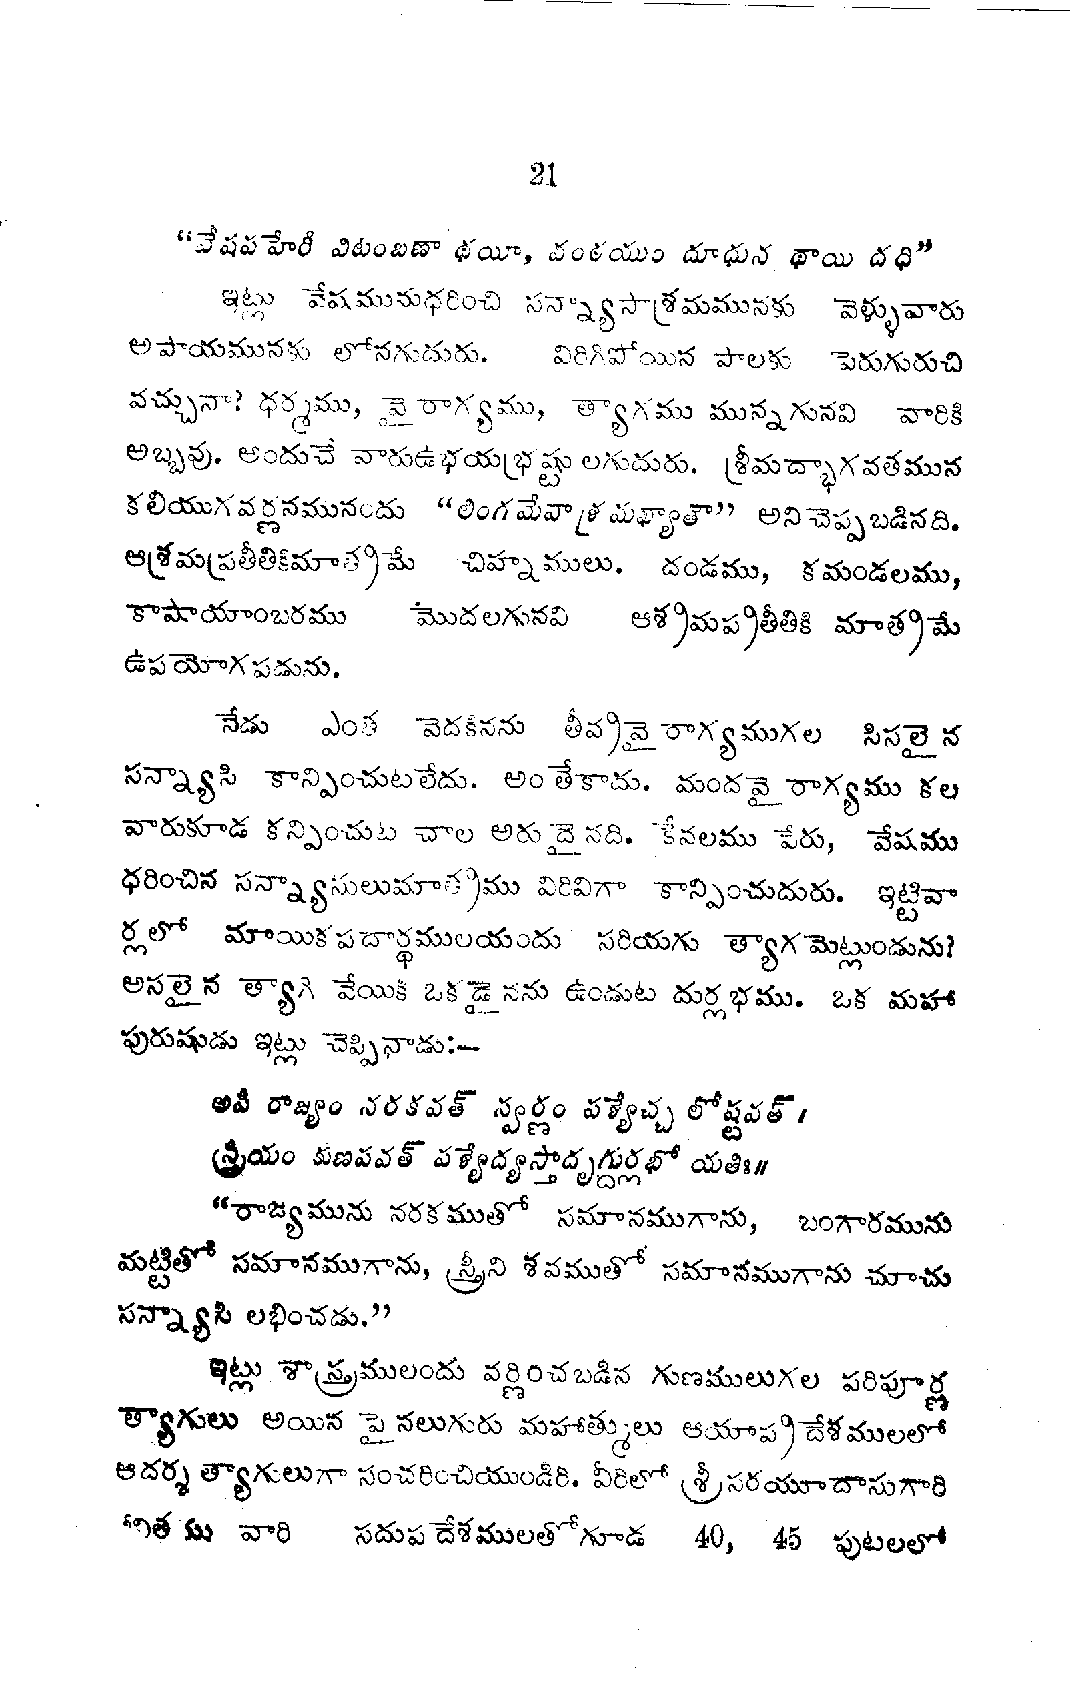 21
“వేషపహేరీ విటంబణా థయీ, వంఠయుం దూధున థాయి దధి”
ఇట్లు వేషమునుధరించి సన్న్యాసాశ్రమమునకు వెళ్ళువారు
అపాయమునకు లోనగుదురు. విరిగిపోయిన పాలకు పెరుగురుచి
వచ్చునా? ధర్మము, వైరాగ్యము, త్యాగము మున్నగునవి వారికి
అబ్బవు. అందుచే వారుఉభయభ్రష్టు లగుదురు. శ్రీమద్భాగవతమున
కలియుగవర్ణనమునందు “లింగమేవాశ్రమఖ్యాతా” అనిచెప్పబడినది.
ఆశ్రమప్రతీతికిమాత్రమే చిహ్నములు. దండము, కమండలము,
కాషాయాంబరము మొదలగునవి ఆశ్రమప్రతీతికి మాత్రమే
ఉపయోగపడును.
నేడు ఎంత వెదకినను తీవ్రవైరాగ్యముగల సిసలైన
సన్న్యాసి కాన్పించుటలేదు. అంతేకాదు. మందవైరాగ్యము కల
వారుకూడ కన్పించుట చాల అరుదైనది. కేవలము పేరు, వేషము
ధరించిన సన్న్యాసులుమాత్రము విరివిగా కాన్పించుదురు. ఇట్టివా
ర్లలో మాయికపదార్థములయందు సరియగు త్యాగమెట్లుండును?
అసలైన త్యాగి వేయికి ఒకడైనను ఉండుట దుర్లభము. ఒక మహా
పురుషుడు ఇట్లు చెప్పినాడు:—
అపీ రాజ్యం నరకవత్ స్వర్ణం పశ్యేచ్చ లోష్టవత్।
స్త్రియం కుణపవత్ పశ్యేద్యస్తాదృగ్దుర్లభో యతిః॥
“రాజ్యమును నరకముతో సమానముగాను, బంగారమును
మట్టితో సమానముగాను, స్త్రీని శవముతో సమానముగాను చూచు
సన్న్యాసి లభించడు.”
ఇట్లు శాస్త్రములందు వర్ణించబడిన గుణములుగల పరిపూర్ణ
త్యాగులు అయిన పై నలుగురు మహాత్ములు ఆయాప్రదేశములలో
ఆదర్శ త్యాగులుగా సంచరించియుండిరి. వీరిలో శ్రీసరయూదాసుగారి
వారి సదుపదేశములతోగూడ 40, 45 పుటలలో